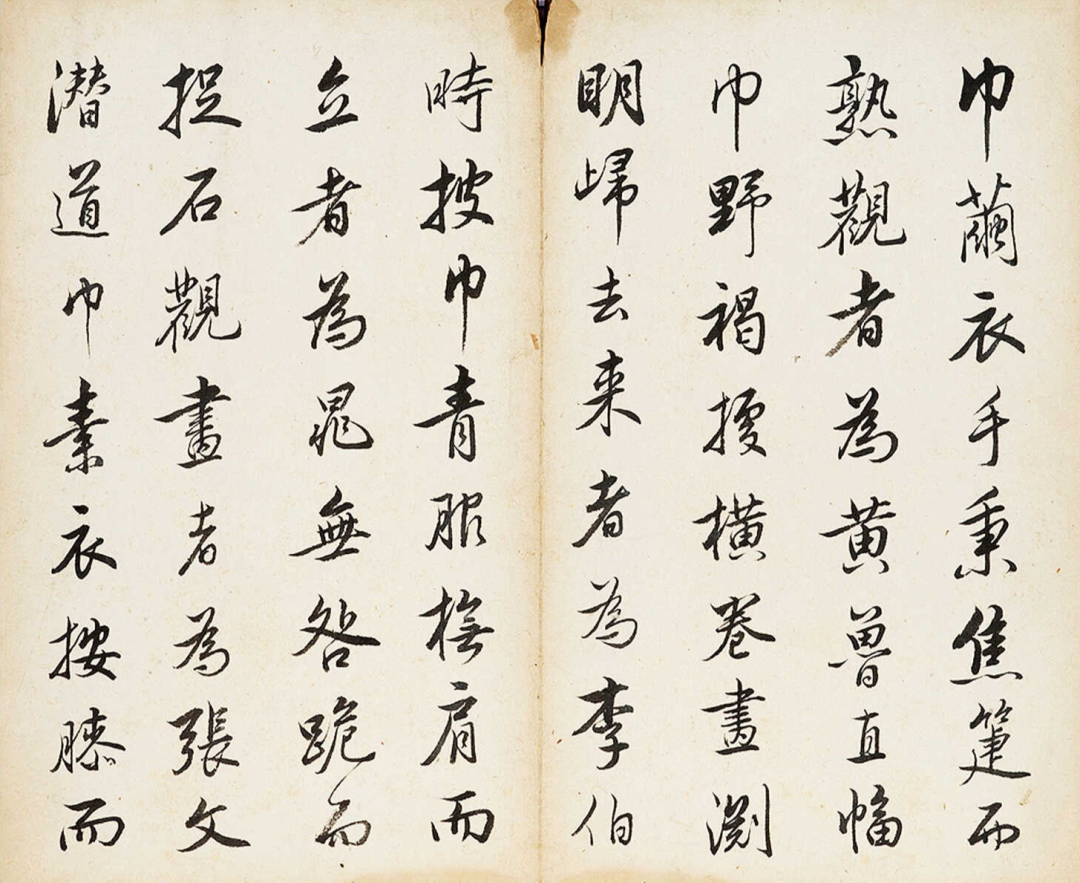 巾繭衣手秉焦箑而
熟觀者為黄魯直幅
巾野褐據横卷畫淵
明歸去来者為李伯
時披巾青服撫肩而
立者為晁無咎跪而
捉石觀畫者為張文
潜道巾素衣按膝而